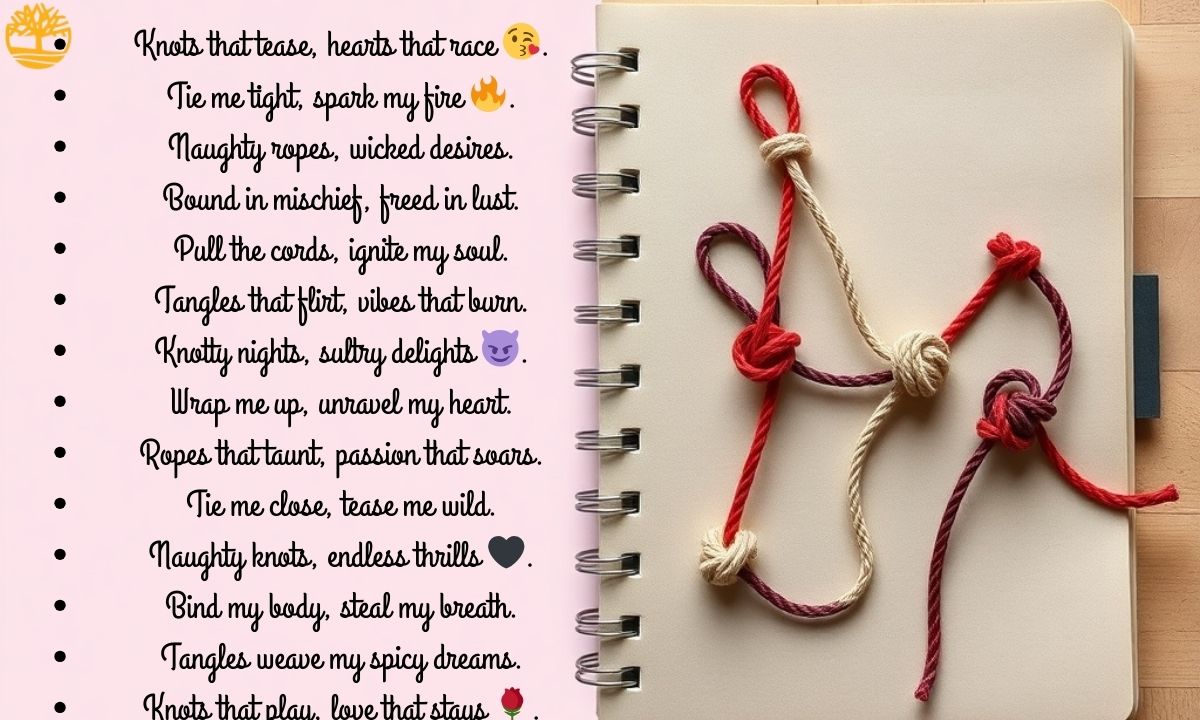 Knots that tease, hearts that race 😘.
Tie me tight, spark my fire 🔥.
Naughty ropes, wicked desires.
Bound in mischief, freed in lust.
Pull the cords, ignite my soul.
Tangles that flirt, vibes that burn.
Knotty nights, sultry delights 😈.
Wrap me up, unravel my heart.
Ropes that taunt, passion that soars.
Tie me close, tease me wild.
Naughty knots, endless thrills 🖤.
Bind my body, steal my breath.
Tangles weave my spicy dreams.
Knots that play, love that stays 🌹.